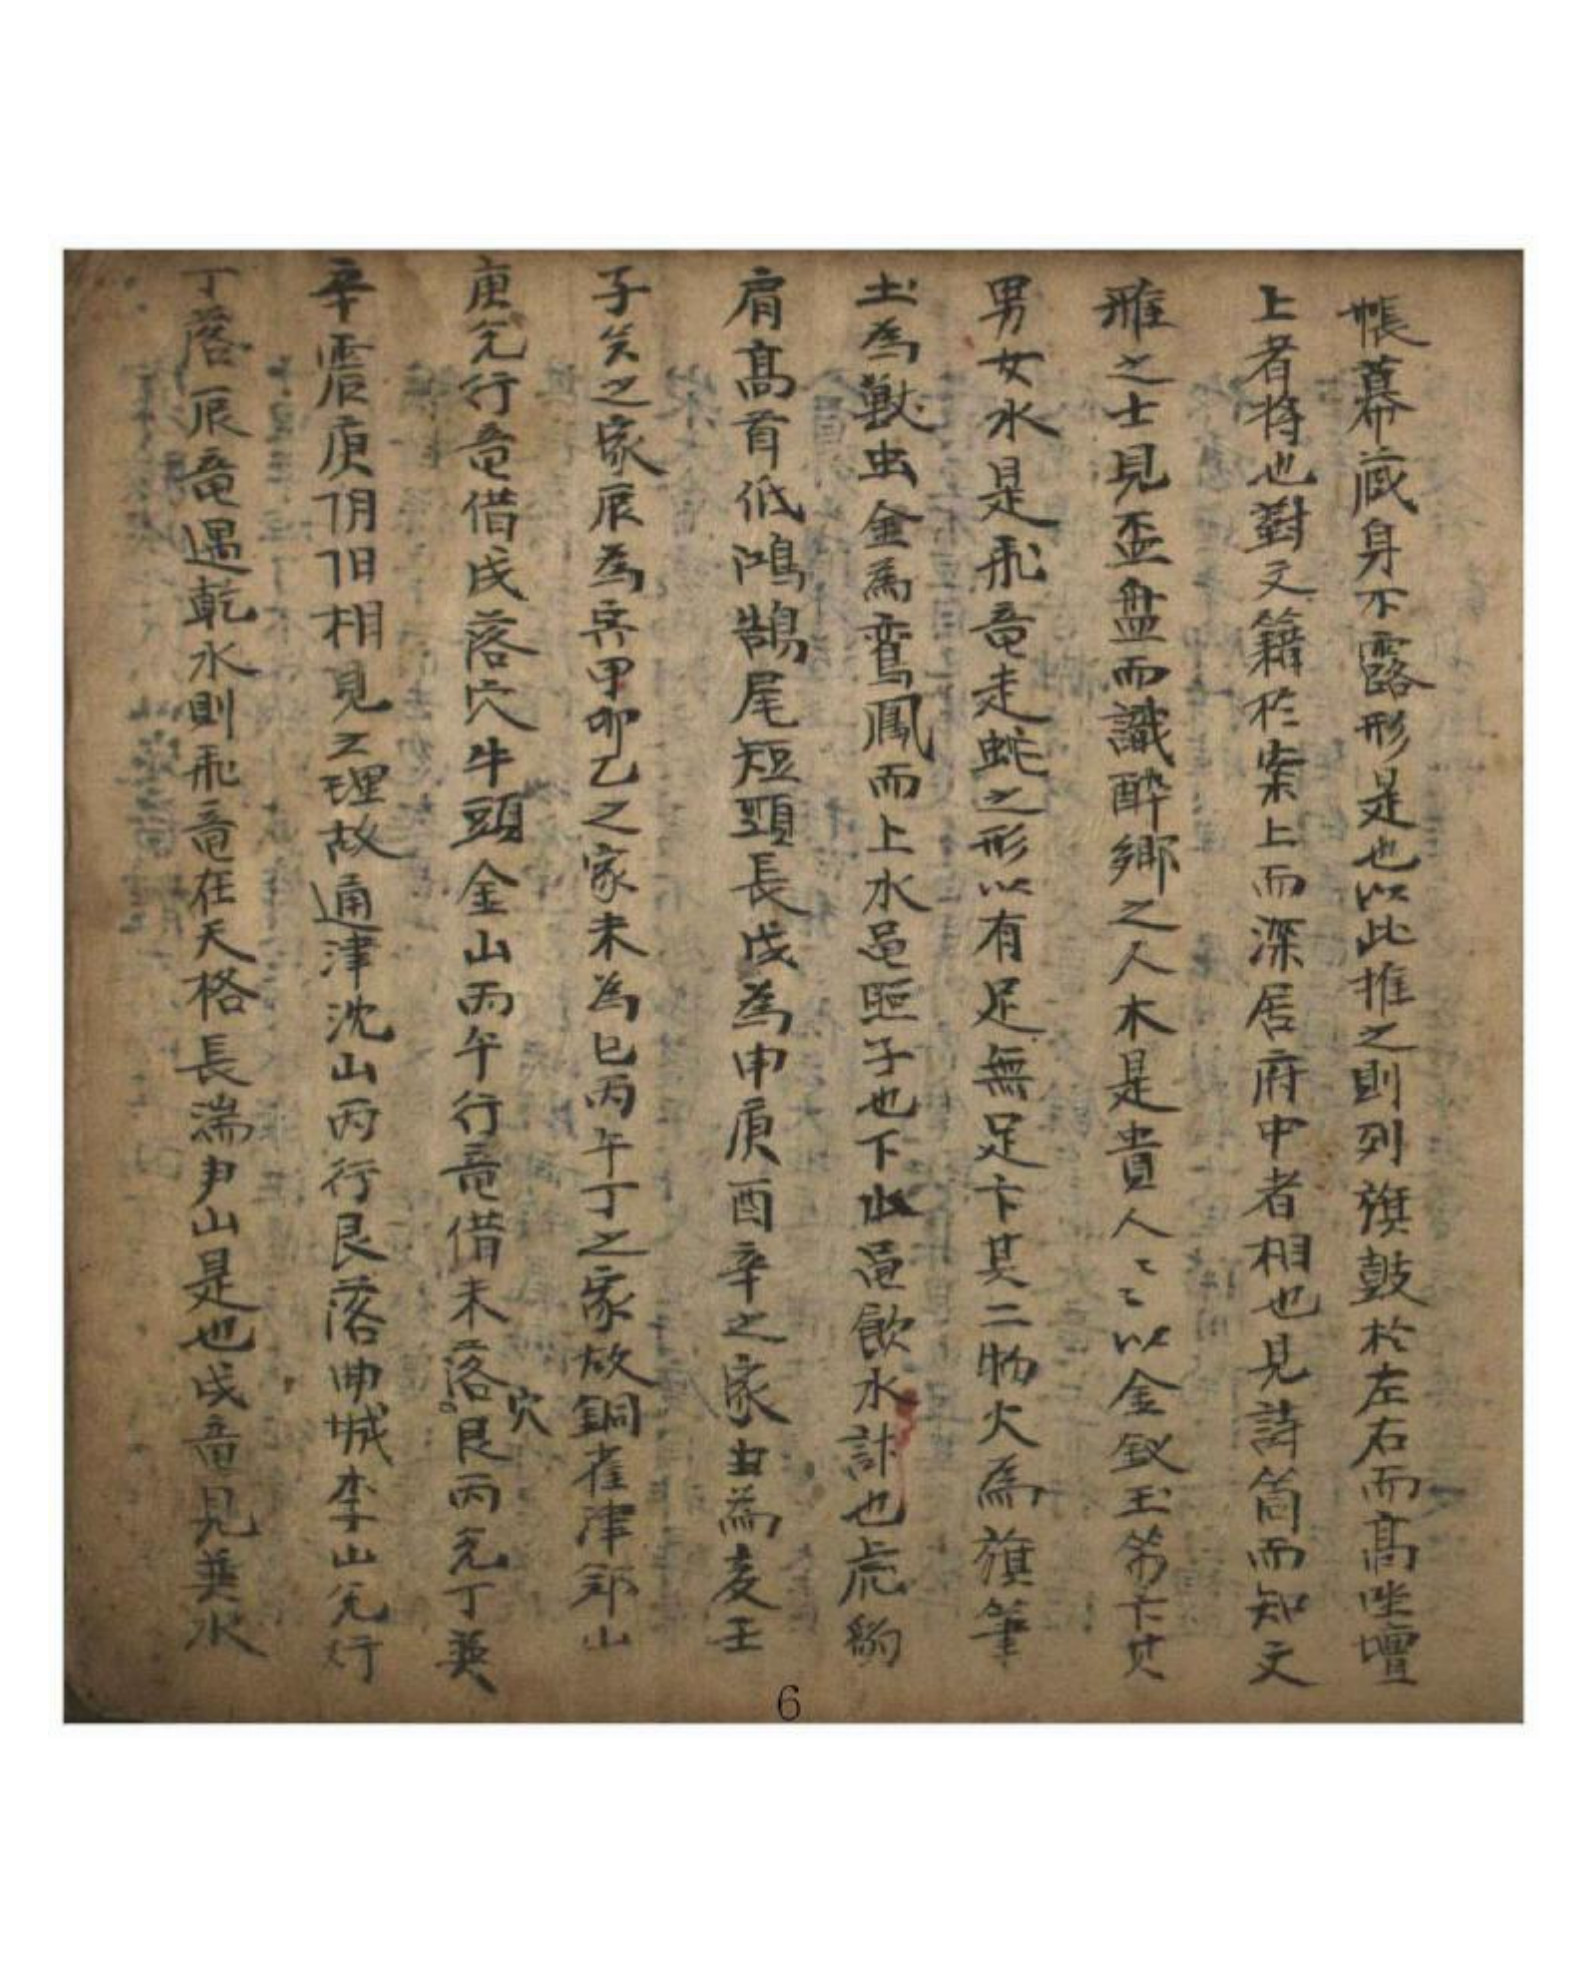 帳幕藏身不露形是也以此推之則列旗鼓於左右而高坐壇
上者將也對文籍於案上而深居府中者相也見詩筒而知文
雅之士見盃盤而識醉鄉之人木是貴人人〻以金釵玉笄卞其
男女水是飛竜走蛇之形以有足無足卞其二物火為旗筆
土為獸虫金為鸞鳳而上水黽 子也下山黽飲水計也虎豹
肩高首低鴻鵠尾短頸長戌為申庚酉辛之家丑為亥壬
子癸之家辰為寅甲卯乙之家未為巳丙午丁之家故銅雀津鄭山
庚兌行竜借戌落穴牛頭金山丙午行竜借未落穴艮丙兌丁巽
辛震庚阴阳相見之理故通津沈山丙行艮落曲城李山兌行
丁落辰竜遇乾水則飛竜在天格長湍尹山是也戌竜見巽水
6